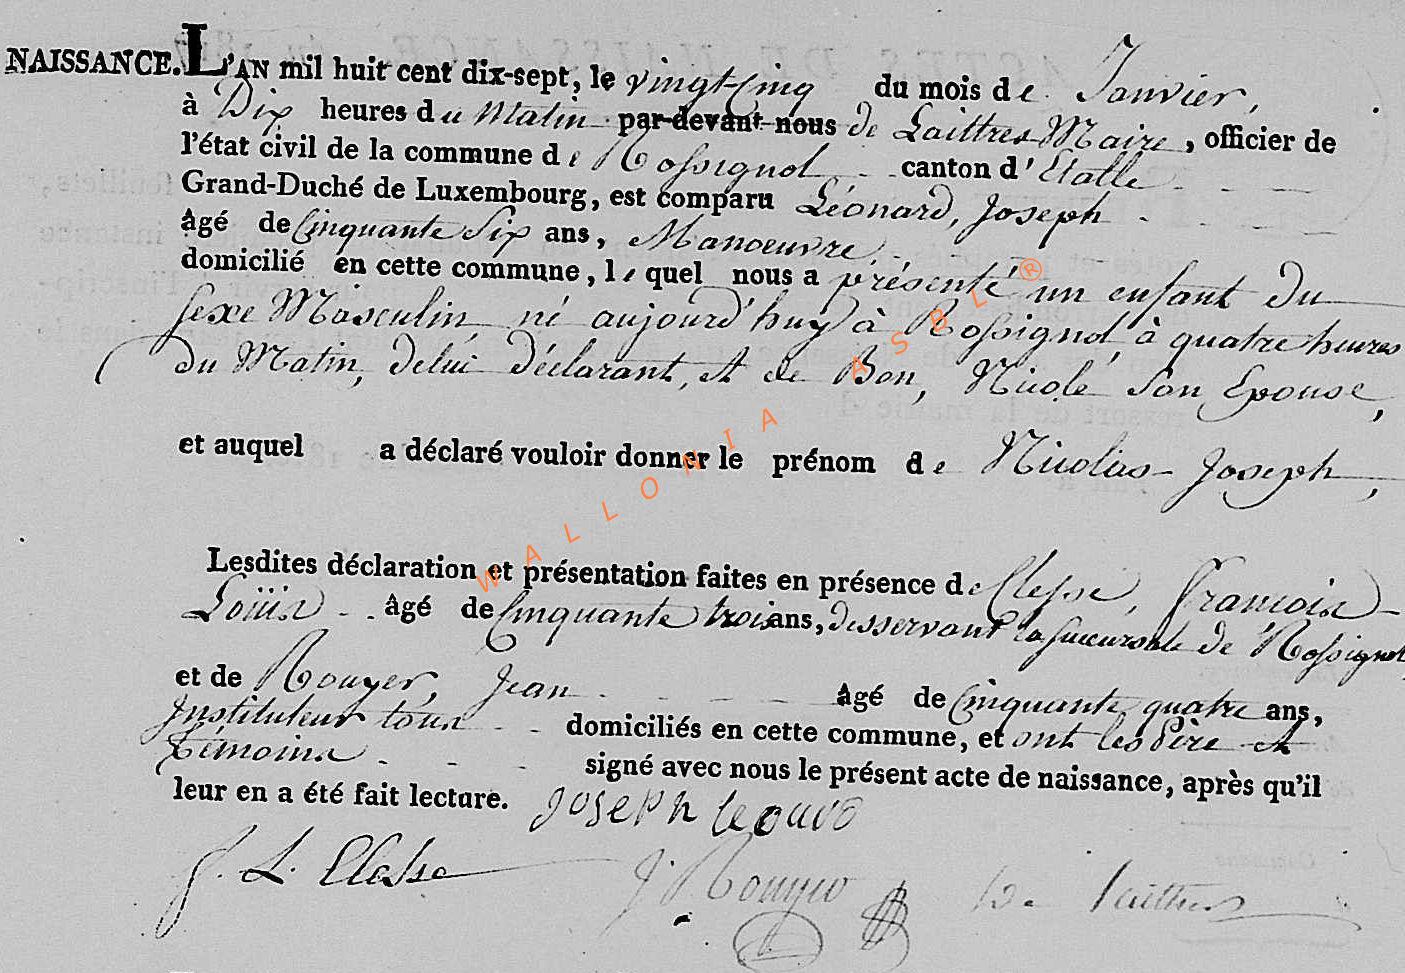 NAISSANCE. L'AN mil huit cent dix-sept, le vingt-Cinq du mois de Janvier,
à Dix heures du Matin par-devant nous de Laittres Maire, officier de
l'état civil de la commune de Rossignol canton d'Etalle
Grand-Duché de Luxembourg, est comparu Léonard, Joseph
âgé de Cinquante Six ans, Manoeuvre,
domicilié en cette commune, lequel nous a présenté un enfant du
sexe Masculin, né aujourd'huy à Rossignol, à quatre heures
du Matin, delui déclarant, et de Bon, Nicole Son Epouse,
et auquel a déclaré vouloir donner le prénom de Nicolas-Joseph,
Lesdites déclaration et présentation faites en présence de Clesse, François
Louis âgé de Cinquante trois ans, desservant la succursale de Rossignol
et de Rouyer, Jean âgé de Cinquante quatre ans,
Instituteur tous domiciliés en cette commune, et ont les Père et
témoins signé avec nous le présent acte de naissance, après qu'il
leur en a été fait lecture. Joseph
f. L. Clesse J. Rouyer De Laittres
WALLONIA ASBL ®